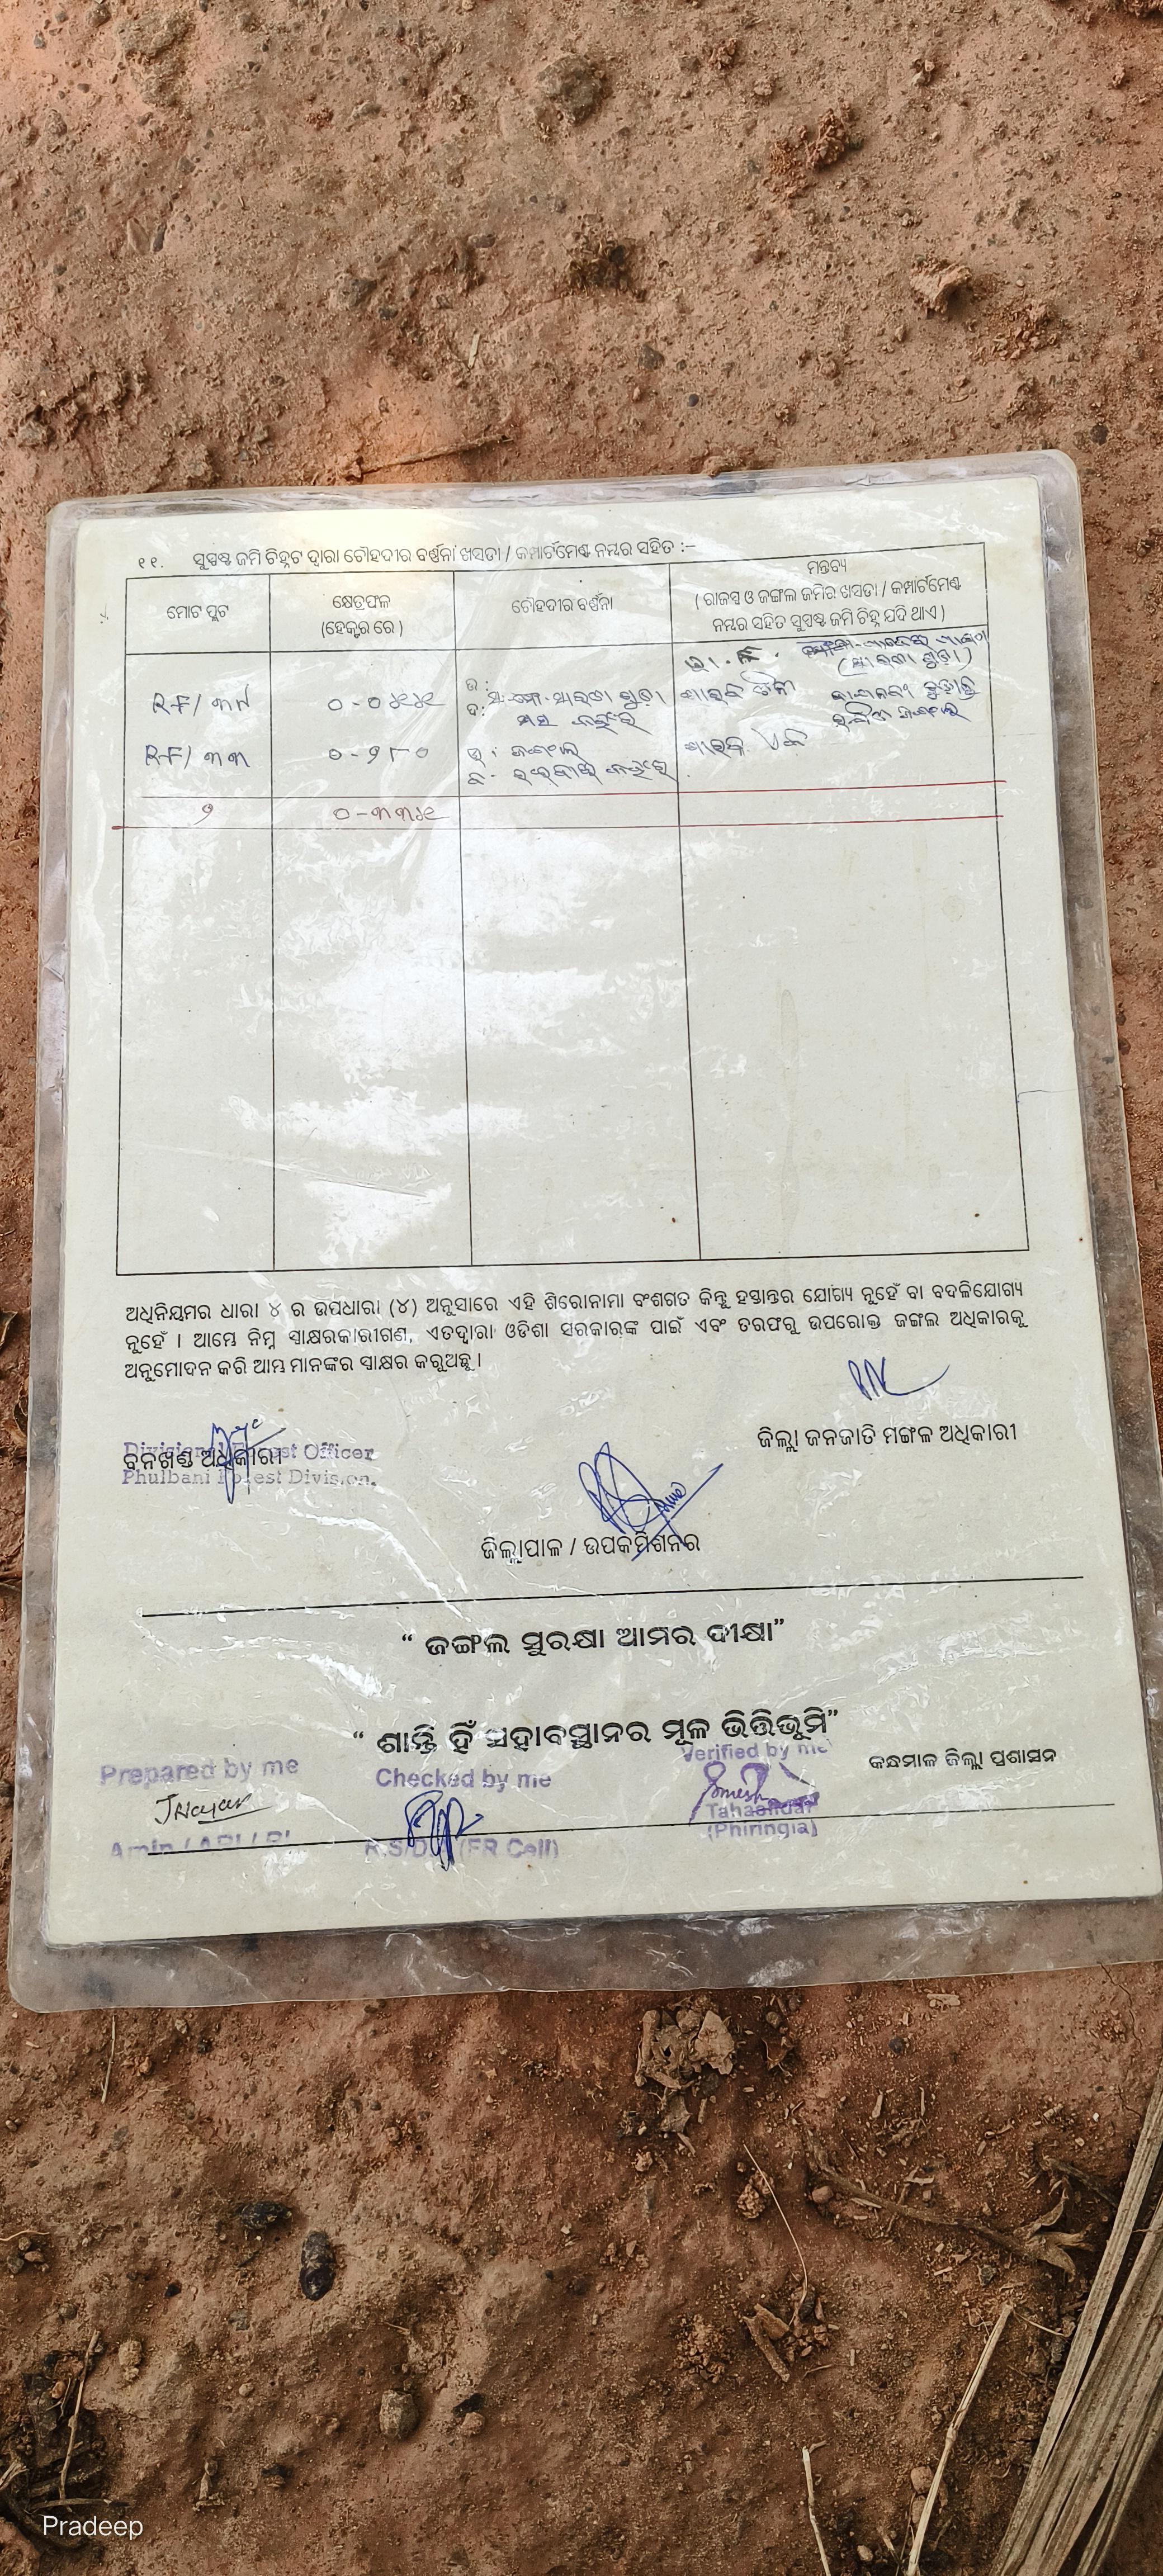 ୧୧. ସୁସ୍ପଷ୍ଟ ଜମି ଚିହ୍ନଟ ଦ୍ୱାରା ଚୌହଦୀର ବର୍ଣ୍ଣନା ଖସଡା / କମ୍ପାର୍ଟମେଣ୍ଟ ନମ୍ବର ସହିତ :–
ମୋଟ ପ୍ଲଟ
କ୍ଷେତ୍ରଫଳ
(ହେକ୍ଟର ରେ )
ଚୌହଦୀର ବର୍ଣ୍ଣନା
ମନ୍ତବ୍ୟ
( ରାଜସ୍ୱ ଓ ଜଙ୍ଗଲ ଜମିର ଖସଡା / କମ୍ପାର୍ଟମେଣ୍ଟ
ନମ୍ବର ସହିତ ସୁସ୍ପଷ୍ଟ ଜମି ଚିହ୍ନ ଯଦି ଥାଏ )
RF/ ୩୩
୦-୨୮୦
ଜଙ୍ଗଲ
୨
ଅଧିନିୟମର ଧାରା ୪ ର ଉପଧାରା (୪) ଅନୁସାରେ ଏହି ଶିରୋନାମା ବଂଶଗତ କିନ୍ତୁ ହସ୍ତାନ୍ତର ଯୋଗ୍ୟ ନୁହେଁ ବା ବଦଳିଯୋଗ୍ୟ
ନୁହେଁ । ଆମ୍ଭେ ନିମ୍ନ ସ୍ୱାକ୍ଷରକାରୀଗଣ, ଏତଦ୍ୱାରା ଓଡିଶା ସରକାରଙ୍କ ପାଇଁ ଏବଂ ତରଫରୁ ଉପରୋକ୍ତ ଜଙ୍ଗଲ ଅଧିକାରକୁ
ଅନୁମୋଦନ କରି ଆମ୍ଭ ମାନଙ୍କର ସ୍ୱାକ୍ଷର କରୁଅଛୁ ।
ଜିଲ୍ଲା ଜନଜାତି ମଙ୍ଗଳ ଅଧିକାରୀ
Divisional Forest Officer
ବନଖଣ୍ଡ ଅଧିକାରୀ
Phulbani Forest Division.
ଜିଲ୍ଲାପାଳ / ଉପକମିଶନର
“ ଜଙ୍ଗଲ ସୁରକ୍ଷା ଆମର ଦୀକ୍ଷା”
“ ଶାନ୍ତି ହିଁ ସହାବସ୍ଥାନର ମୂଳ ଭିତ୍ତିଭୂମି”
କନ୍ଧମାଳ ଜିଲ୍ଲା ପ୍ରଶାସନ
Prepared by me
Checked by me
Verified by me
JNayak
Tahasildar
(Phiringia)
(FR Cell)
Pradeep